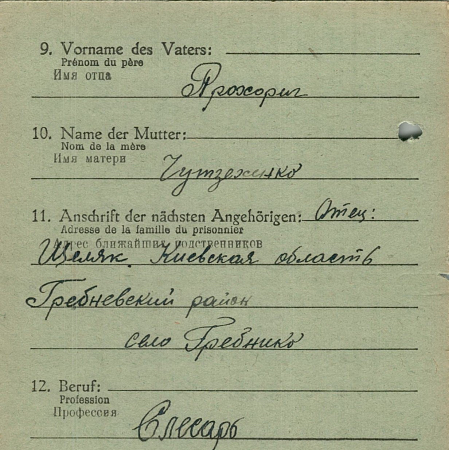 9. Vorname des Vaters:
Prénom du père
Имя отца
Прохорич
10. Name der Mutter:
Nom de la mère
Имя матери
11. Anschrift der nächsten Angehörigen: Отец:
Adresse de la famille du prisonnier
Адрес ближайших родственников
Шеляк. Киевская область
Гребневский район
село Гребнико
12. Beruf:
Profession
Профессия
Слесарь